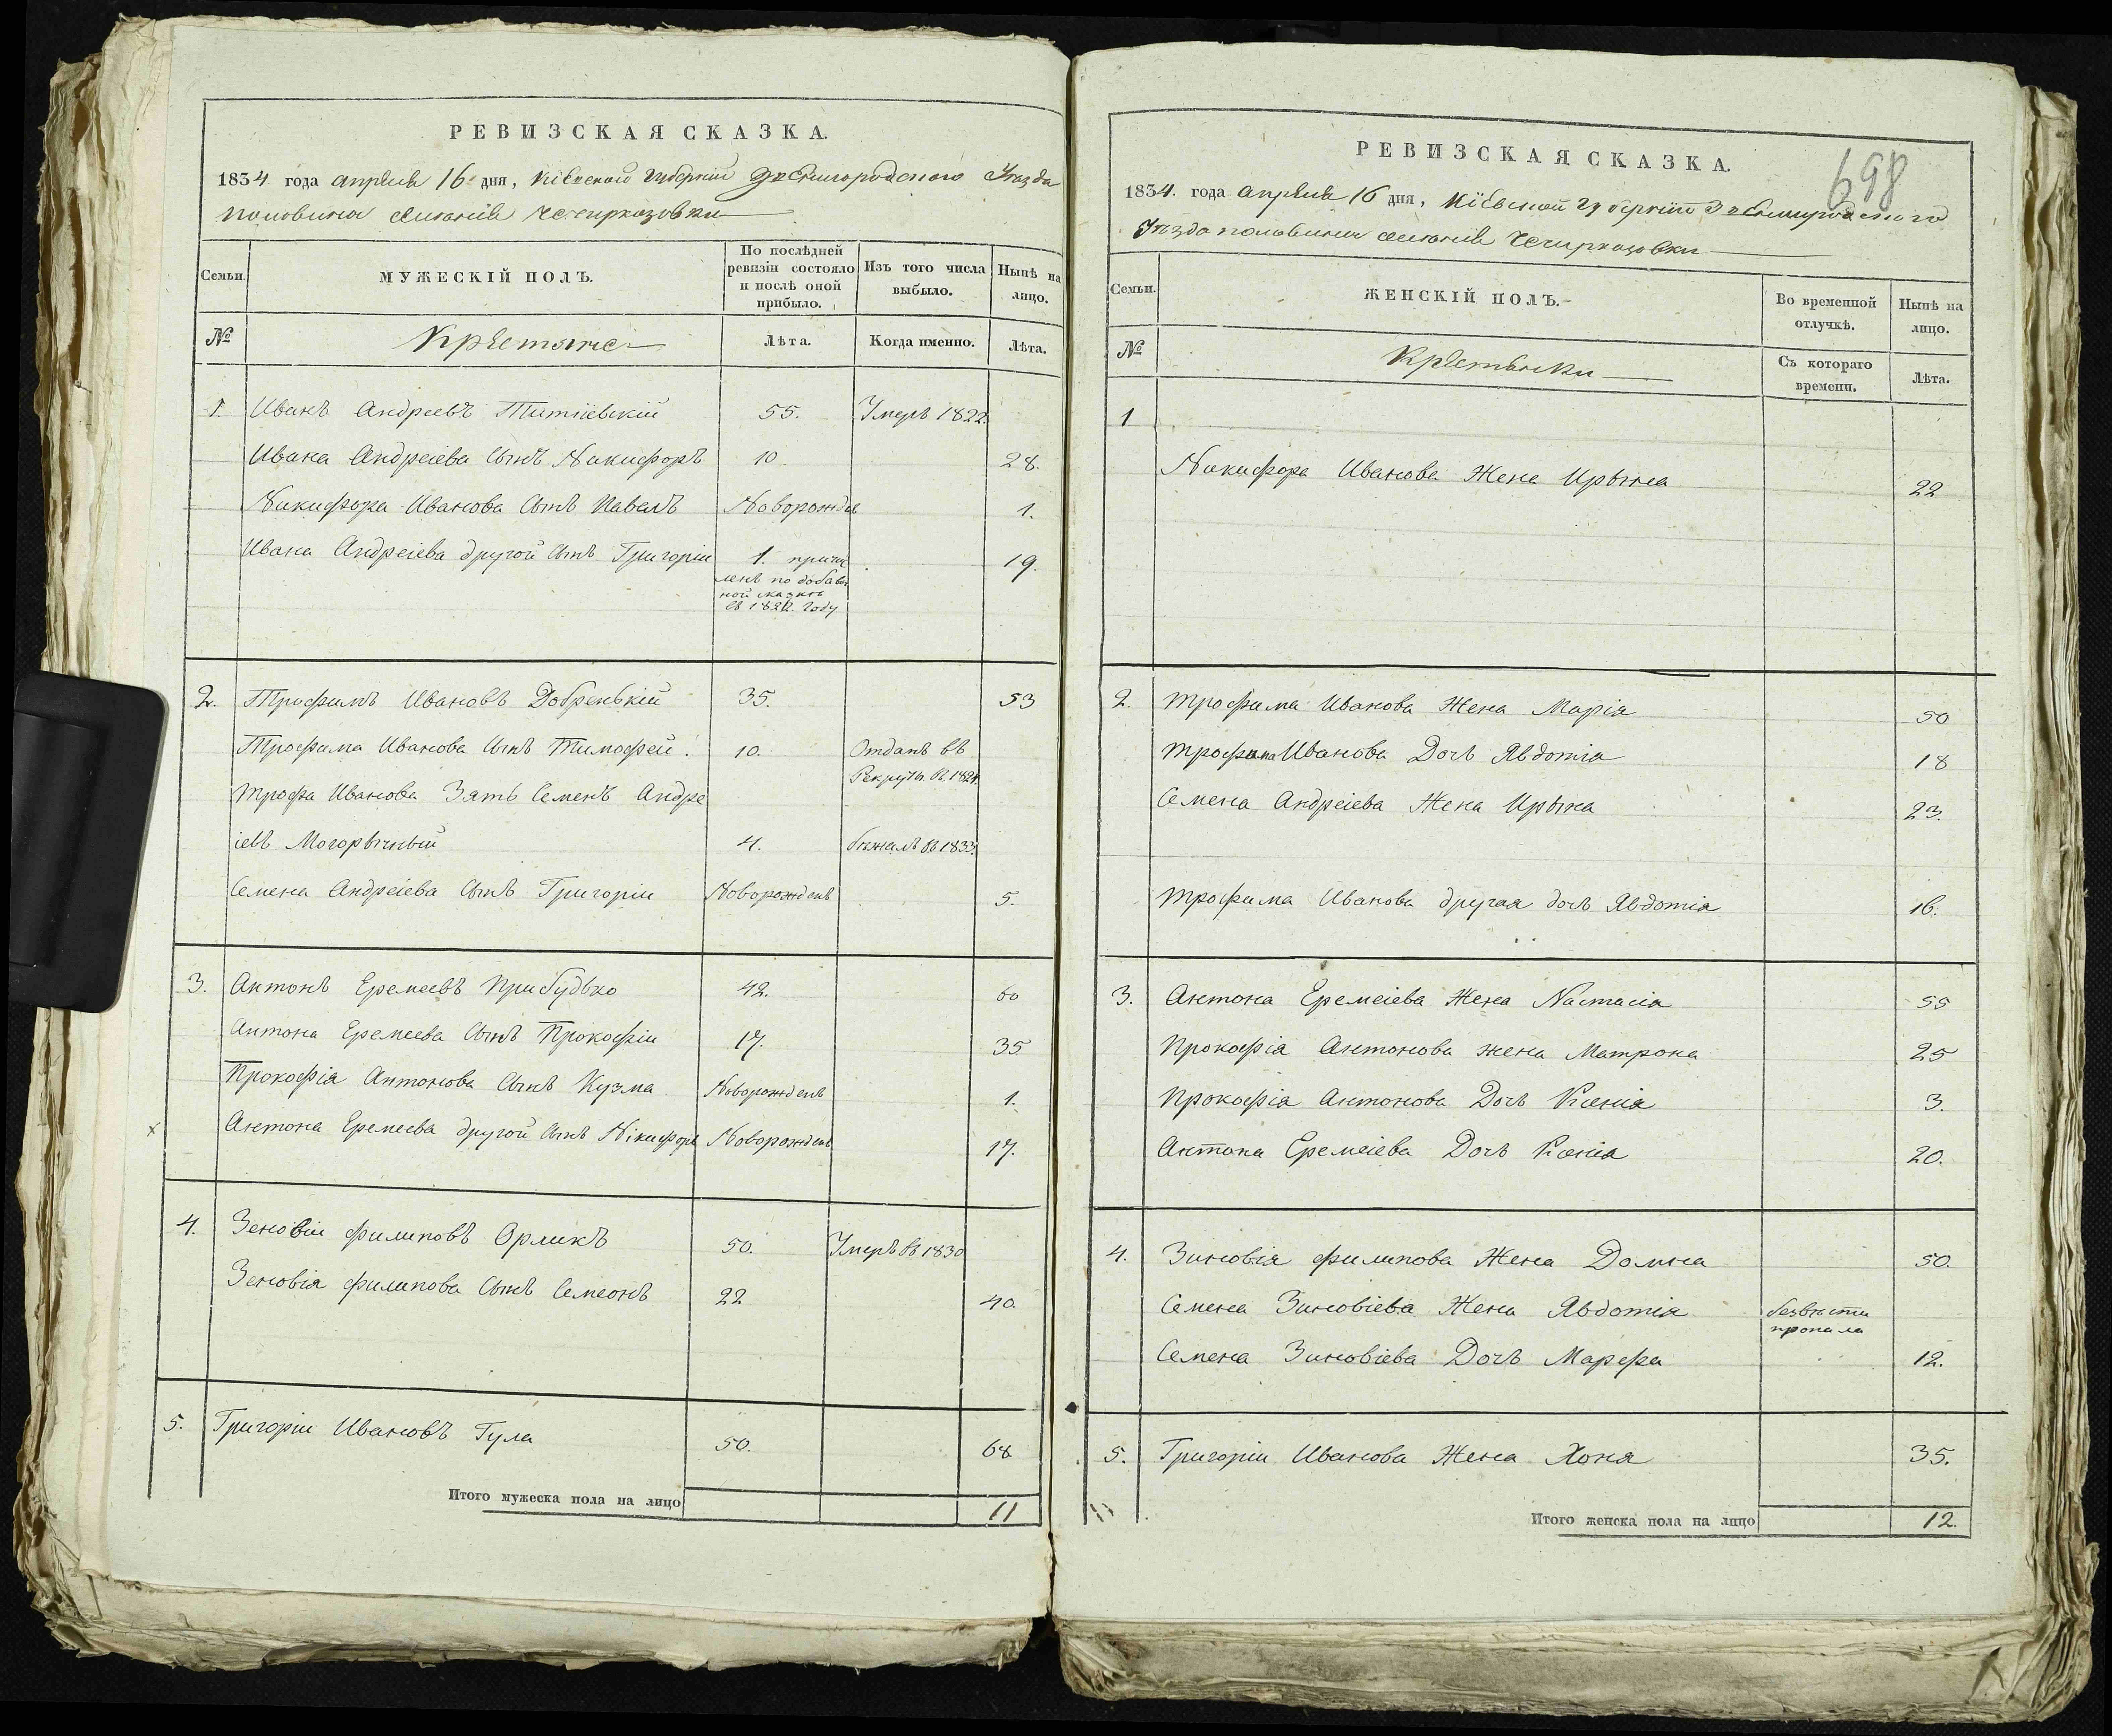 РЕВИЗСКАЯ СКАЗКА.
1834 года апреля 16 дня, Кіевской губерніи Звенигородского Уезда
половина селенія Чечирказовки
Семьи.
МУЖЕСКІЙ ПОЛЪ.
По послѣдней ревизіи состояло и послѣ оной прибыло.
Изъ того числа выбыло.
Нынѣ на лицо.
№
Крестяне
Лѣта.
Когда именно.
Лѣта.
1. Иванъ Андреевъ Титіевскій 55. Умеръ 1822.
Ивана Андреіева Сынъ Никифоръ 10 28.
Никифора Иванова Сынъ Павелъ Новорожде 1.
Ивана Андреіева другой Сынъ Григоріи 1. причи 19.
ленъ по добавоч
ной сказкѣ
въ 1822. году
2. Трофимъ Ивановъ Добренькій 35. 53
Трофима Иванова Сынъ Тимофей. 10. Отданъ въ
Рекруты въ 1824
Трофа Иванова Зять Семенъ Андре
іевъ Могорычный 4. бѣжалъ въ 1833.
Семена Андреіева Сынъ Григоріи Новорожденъ 5.
3. Антонъ Еремеевъ Прибудько 42. 60
Антона Еремеева Сынъ Прокофіи 17. 35
Прокофія Антонова Сынъ Кузма Новорожденъ 1.
х Антона Еремеева другой Сынъ Нікифоръ Новорожденъ 17.
4. Зеновіи Филиповъ Орликъ 50. Умеръ въ 1830
Зеновія Филипова Сынъ Семеонъ 22 40.
5. Григоріи Ивановъ Гула 50. 68
Итого мужеска пола на лицо 11
698
РЕВИЗСКАЯ СКАЗКА.
1834. года апреля 16 дня, Кіевской губерніи Звенигородского
Уезда половина селенія Чечирказовки
Семьи.
ЖЕНСКІЙ ПОЛЪ.
Во временной отлучкѣ.
Нынѣ на лицо.
№
Крестьянки
Съ котораго времени.
Лѣта.
1
Никифора Иванова Жена Ирына 22
2. Трофима Иванова Жена Марія 50
Трофима Иванова Дочь Явдотія 18
Семена Андреіева Жена Ирына 23.
Трофима Иванова другая дочь Явдотія 16.
3. Антона Еремеіева Жена Настасія 55
Прокофія Антонова жена Матрона 25
Прокофія Антонова Дочь Ксенія 3.
Антона Еремеіева Дочь Ксенія 20.
4. Зиновія Филипова Жена Домна 50.
Семена Зиновіева Жена Явдотія безвѣсти
пропала
Семена Зиновіева Дочь Марфа 12.
5. Григоріи Иванова Жена Хоня 35.
Итого женска пола на лицо 12.